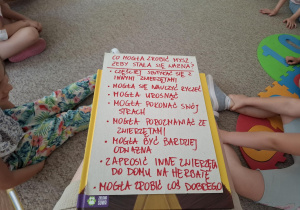 CO MOGŁA ZROBIĆ MYSZ,
ŻEBY STAŁA SIĘ WAŻNA?
• CZĘŚCIEJ SPOTYKAĆ SIĘ Z
INNYMI ZWIERZĘTAMI
• MOGŁA SIĘ NAUCZYĆ RYCZEĆ
• MOGŁA UROSNĄĆ
• MOGŁA POKONAĆ SWÓJ
STRACH
• MOGŁA POROZMAWIAĆ ZE
ZWIERZĘTAMI
• MOGŁA BYĆ BARDZIEJ
ODWAŻNA
• ZAPROSIĆ INNE ZWIERZĘTA
DO DOMU NA HERBATĘ
• MOGŁA ZROBIĆ COŚ DOBREGO